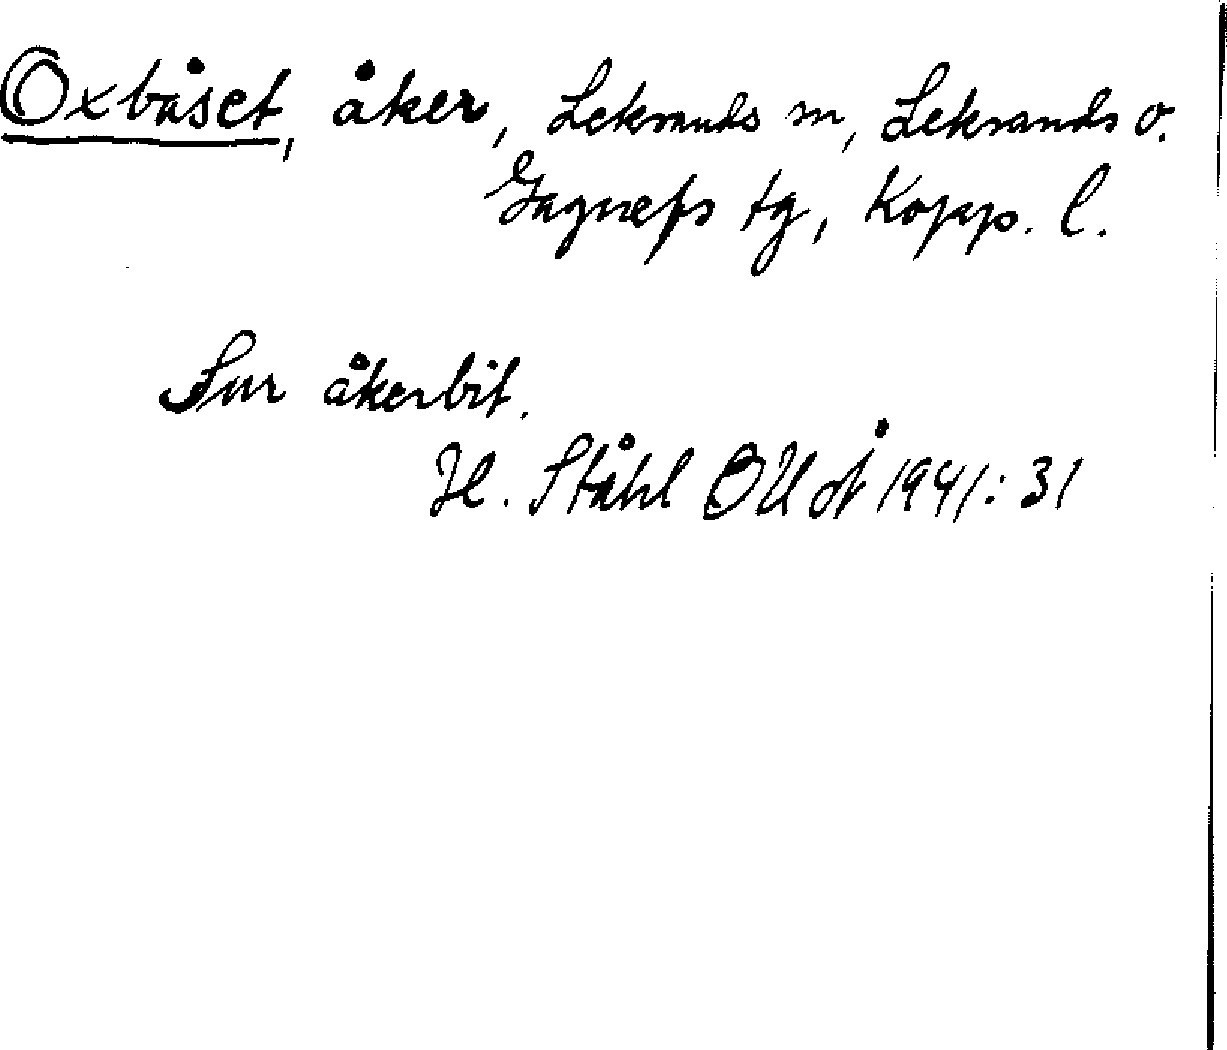 Oxbåset, åker, Leksands sn, Leksands o.
Gagnefs tg, Kopp. l.
Sur åkerbit.
H. Ståhl OUÅ 1941: 31